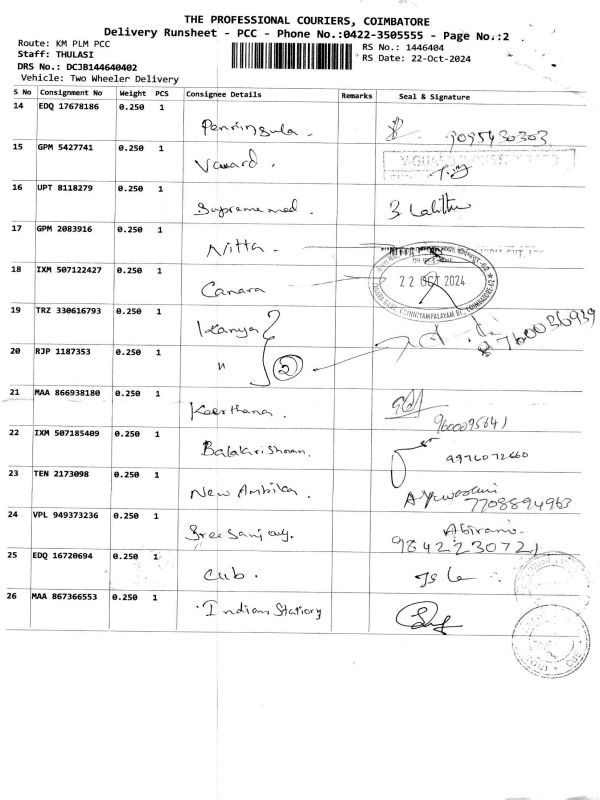 THE PROFESSIONAL COURIERS, COIMBATORE
Delivery Runsheet - PCC - Phone No.:0422-3505555 - Page No.:2
Route: KM PLM PCC
RS No.: 1446404
Staff: THULASI
RS Date: 22-Oct-2024
DRS No.: DCJB144640402
Vehicle: Two Wheeler Delivery
S No Consignment No Weight PCS Consignee Details Remarks Seal & Signature
14 EDQ 17678186 0.250 1
15 GPM 5427741 0.250 1
16 UPT 8118279 0.250 1 Supreme med.
17 GPM 2083916 0.250 1 Nitta.
18 IXM 507122427 0.250 1 Canara 22 OCT 2024
19 TRZ 330616793 0.250 1 Kanya
20 RJP 1187353 0.250 1 " 2
21 MAA 866938180 0.250 1 Keerthana. 9600095641
22 IXM 507185409 0.250 1 Balakrishnan. 9976072660
23 TEN 2173098 0.250 1 New Ambika. 7708894963
24 VPL 949373236 0.250 1 Abirami. 9842230721
25 EDQ 16720694 0.250 1 cub.
26 MAA 867366553 0.250 1 Indian Statiory